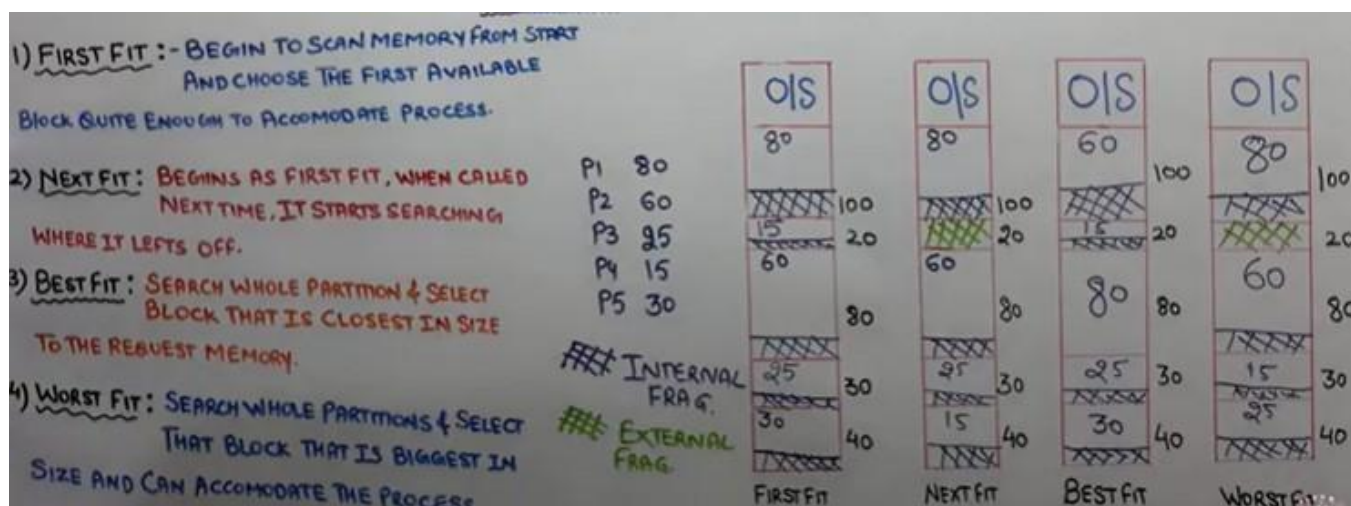 1) FIRST FIT :- BEGIN TO SCAN MEMORY FROM START
AND CHOOSE THE FIRST AVAILABLE
BLOCK QUITE ENOUGH TO ACCOMODATE PROCESS.
2) NEXT FIT : BEGINS AS FIRST FIT, WHEN CALLED
NEXT TIME, IT STARTS SEARCHING
WHERE IT LEFTS OFF.
3) BEST FIT : SEARCH WHOLE PARTITION & SELECT
BLOCK THAT IS CLOSEST IN SIZE
TO THE REQUEST MEMORY.
4) WORST FIT : SEARCH WHOLE PARTITIONS & SELECT
THAT BLOCK THAT IS BIGGEST IN
SIZE AND CAN ACCOMODATE THE PROCESS
P1 80
P2 60
P3 25
P4 15
P5 30
INTERNAL
FRAG.
EXTERNAL
FRAG.
O/S
80
100
15
20
60
80
25
30
30
40
FIRST FIT
O/S
80
100
20
60
80
25
30
15
40
NEXT FIT
O/S
60
100
15
20
80
80
25
30
30
40
BEST FIT
O/S
80
100
20
60
80
15
30
25
40
WORST FIT